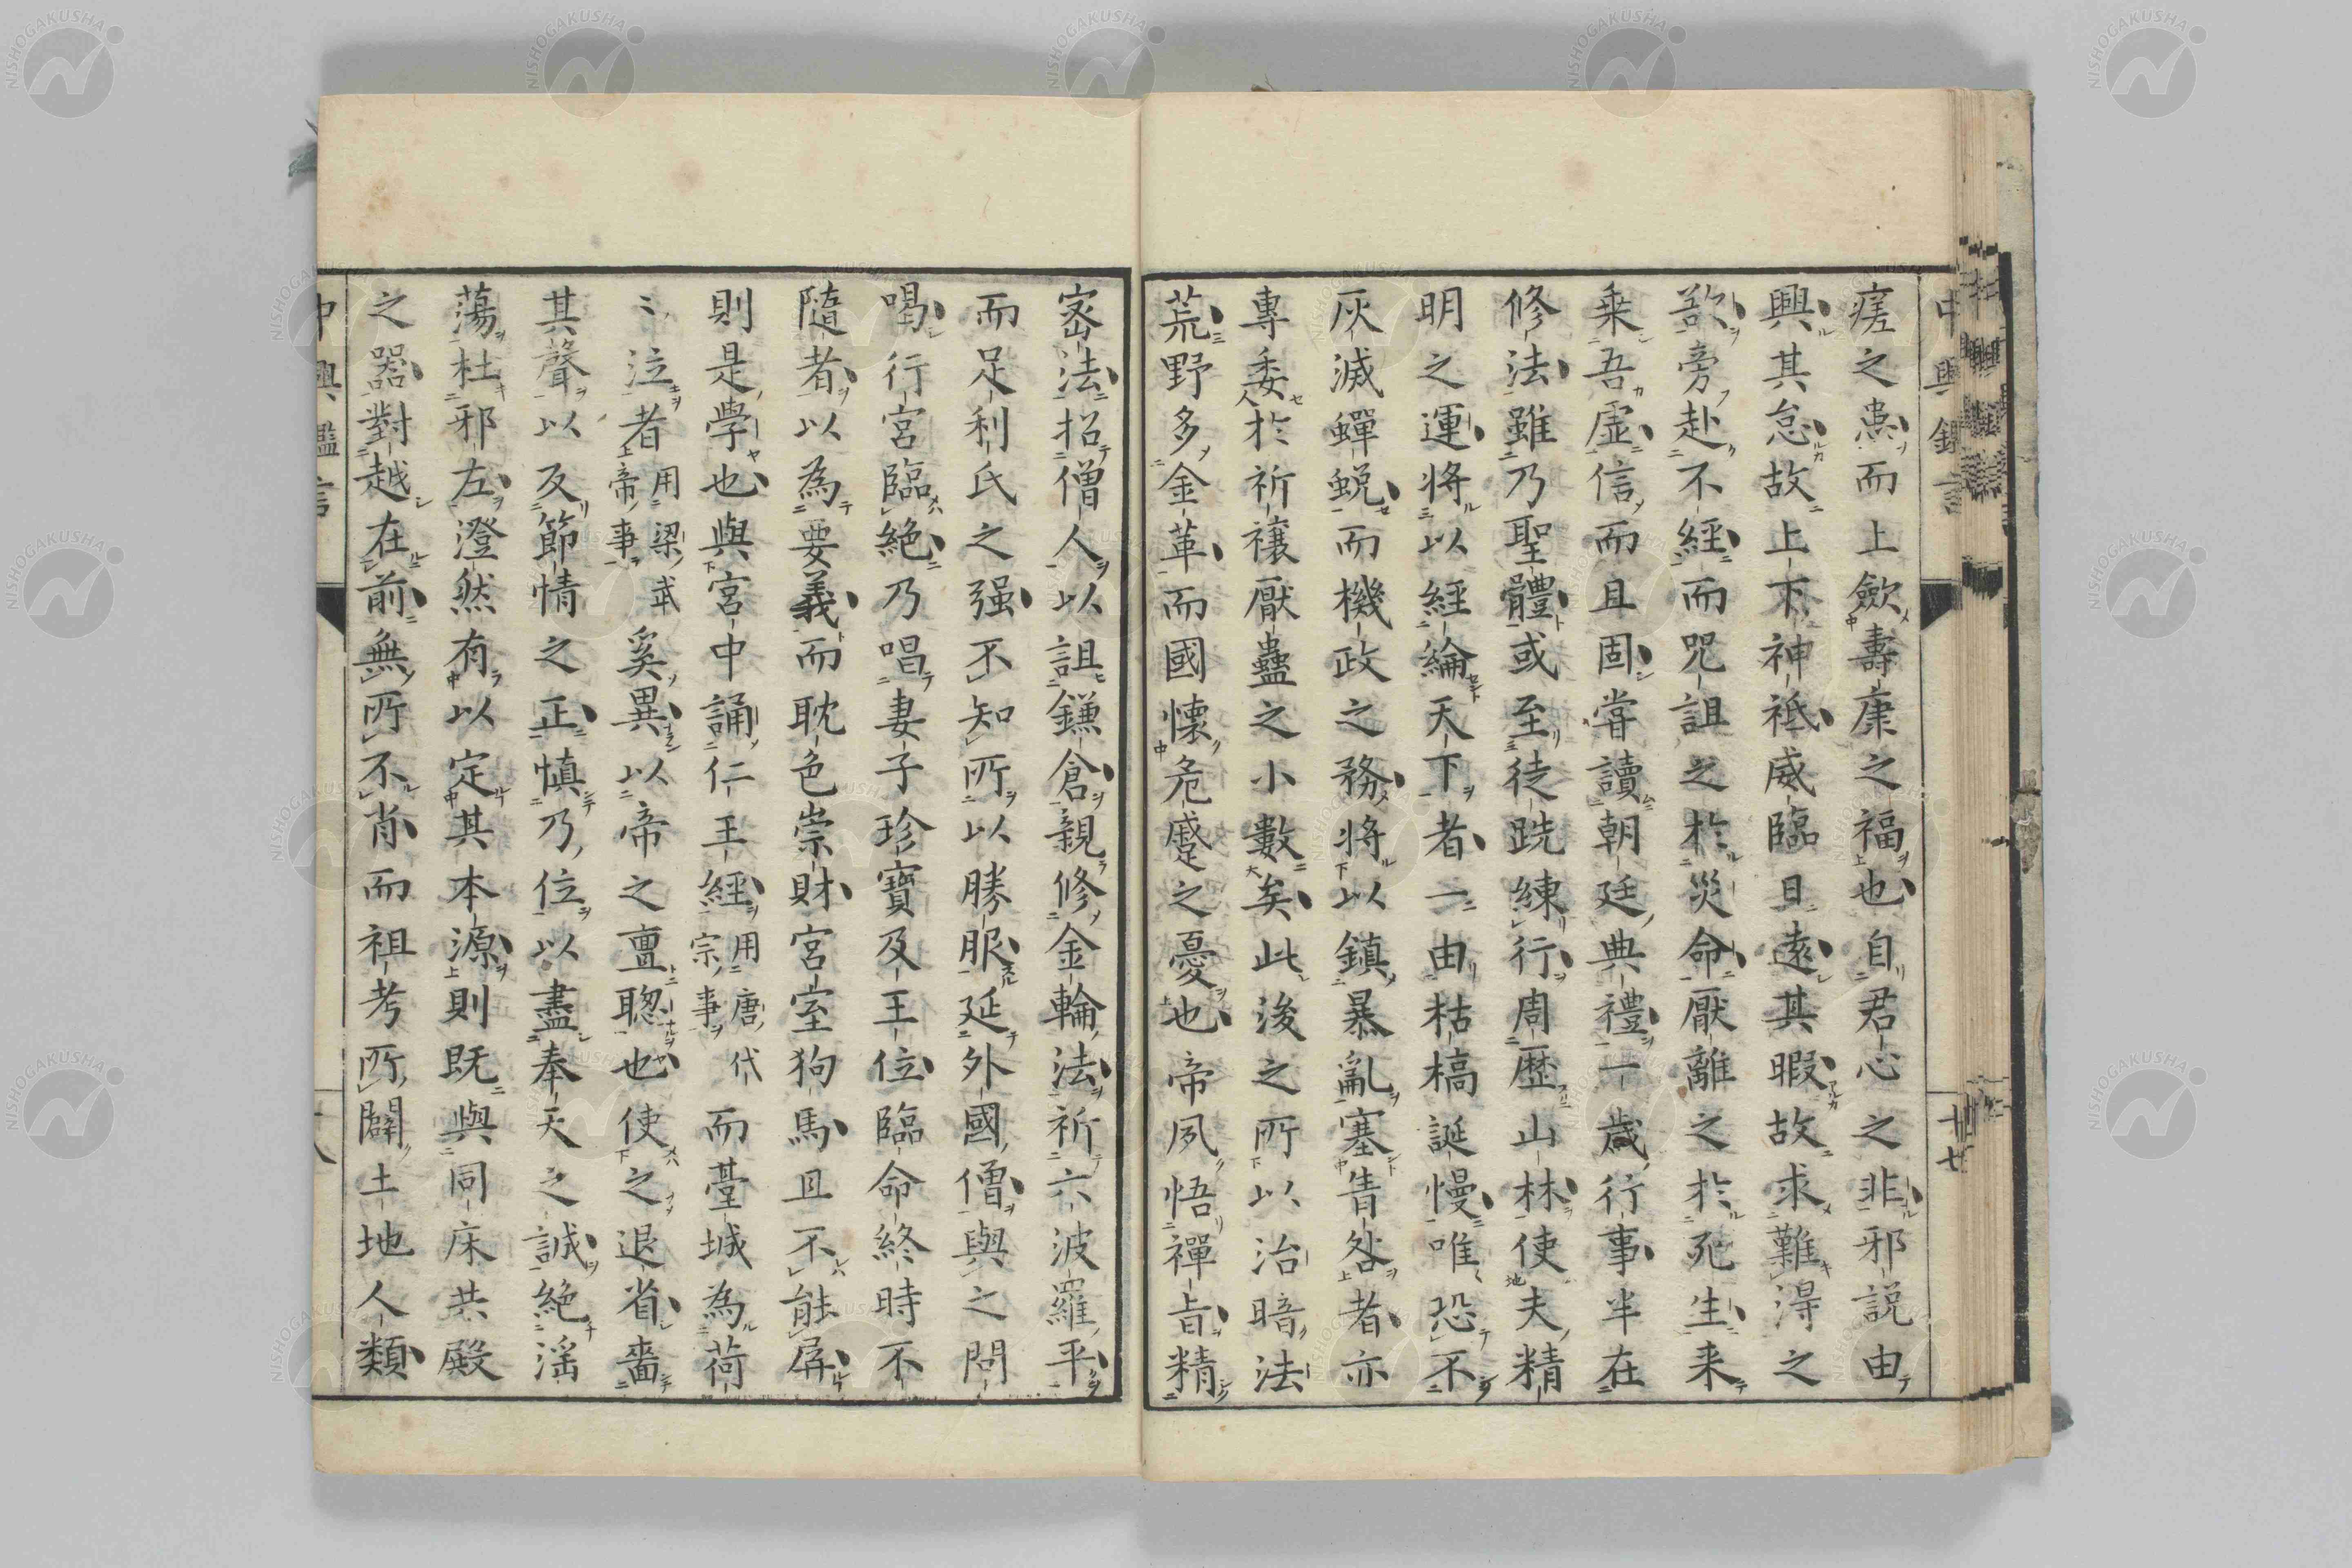 中興鑑言
十七
瘥之患而上歛壽康之福也自君心之非邪説由
興其怠故上下神祇威臨日遠其暇故求難得之
欲旁赴不經而咒詛之於災命厭離之於死生来
乗吾虚信而且固甞讀朝廷典禮一歳行事半在
修法雖乃聖體或至徒跣練行周歴山林使夫精
明之運将以經綸天下者一由枯槁誕慢唯恐不
灰滅蟬蛻而機政之務将以鎮暴亂塞眚咎者亦
專委於祈禳厭蠱之小數矣此後之所以治暗法
荒野多金革而國懐危蹙之憂也帝夙悟禪旨精
宻法招僧人以詛鎌倉親修金輪法祈六波羅平
而足利氏之强不知所以勝服延外國僧與之問
喝行宮臨絶乃唱妻子珍寶及王位臨命終時不
隨者以為要義而耽色崇財宮室狗馬且不能屏
則是學也與宮中誦仁王經用唐代宗事而臺城為荷
〻泣者用梁武帝事奚異以帝之亶聰也使之退省嗇
其聲以反節情之正慎乃位以盡奉天之誠絶滛
蕩杜邪左澄然有以定其本源則既與同床共殿
之器對越在前無所不肖而祖考所闢土地人類
中興鑑言
八
NISHOGAKUSHA